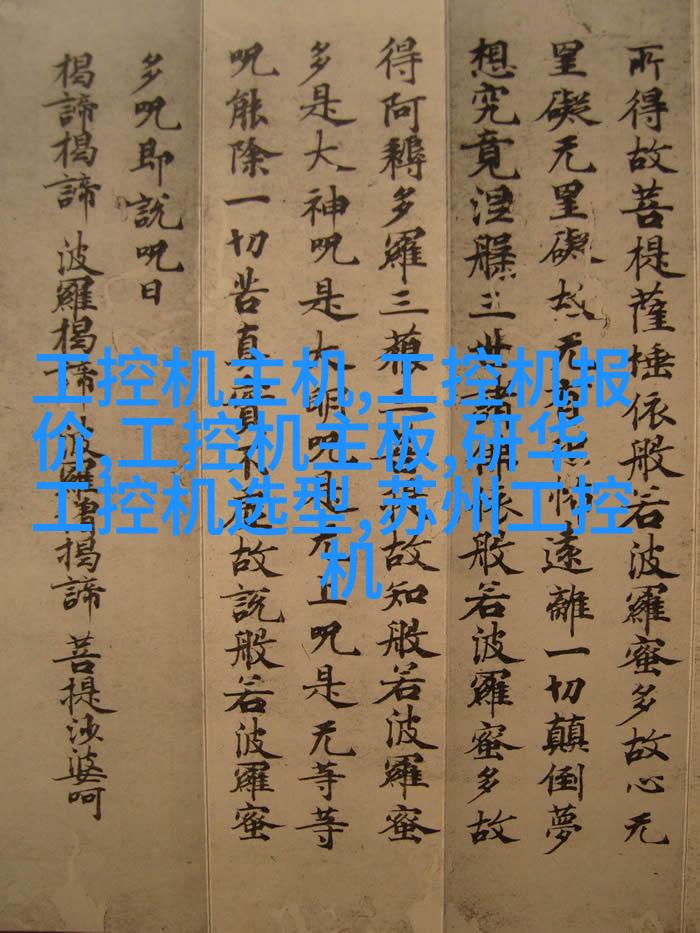 所得故菩提薩埵依般若波羅蜜多故心无
罣礙无罣礙故无有恐怖遠離一切顛倒夢
想究竟涅槃三世諸佛依般若波羅蜜多故
得阿耨多羅三藐三菩提故知般若波羅蜜
多是大神呪是大明呪是无上呪是无等等
呪能除一切苦真實不虛故說般若波羅蜜
多呪即說呪曰
揭諦揭諦 波羅揭諦 波羅僧揭諦 菩提沙婆呵
工控机主机,工控机报
价,工控机主板,研华
工控机选型,苏州工控
机